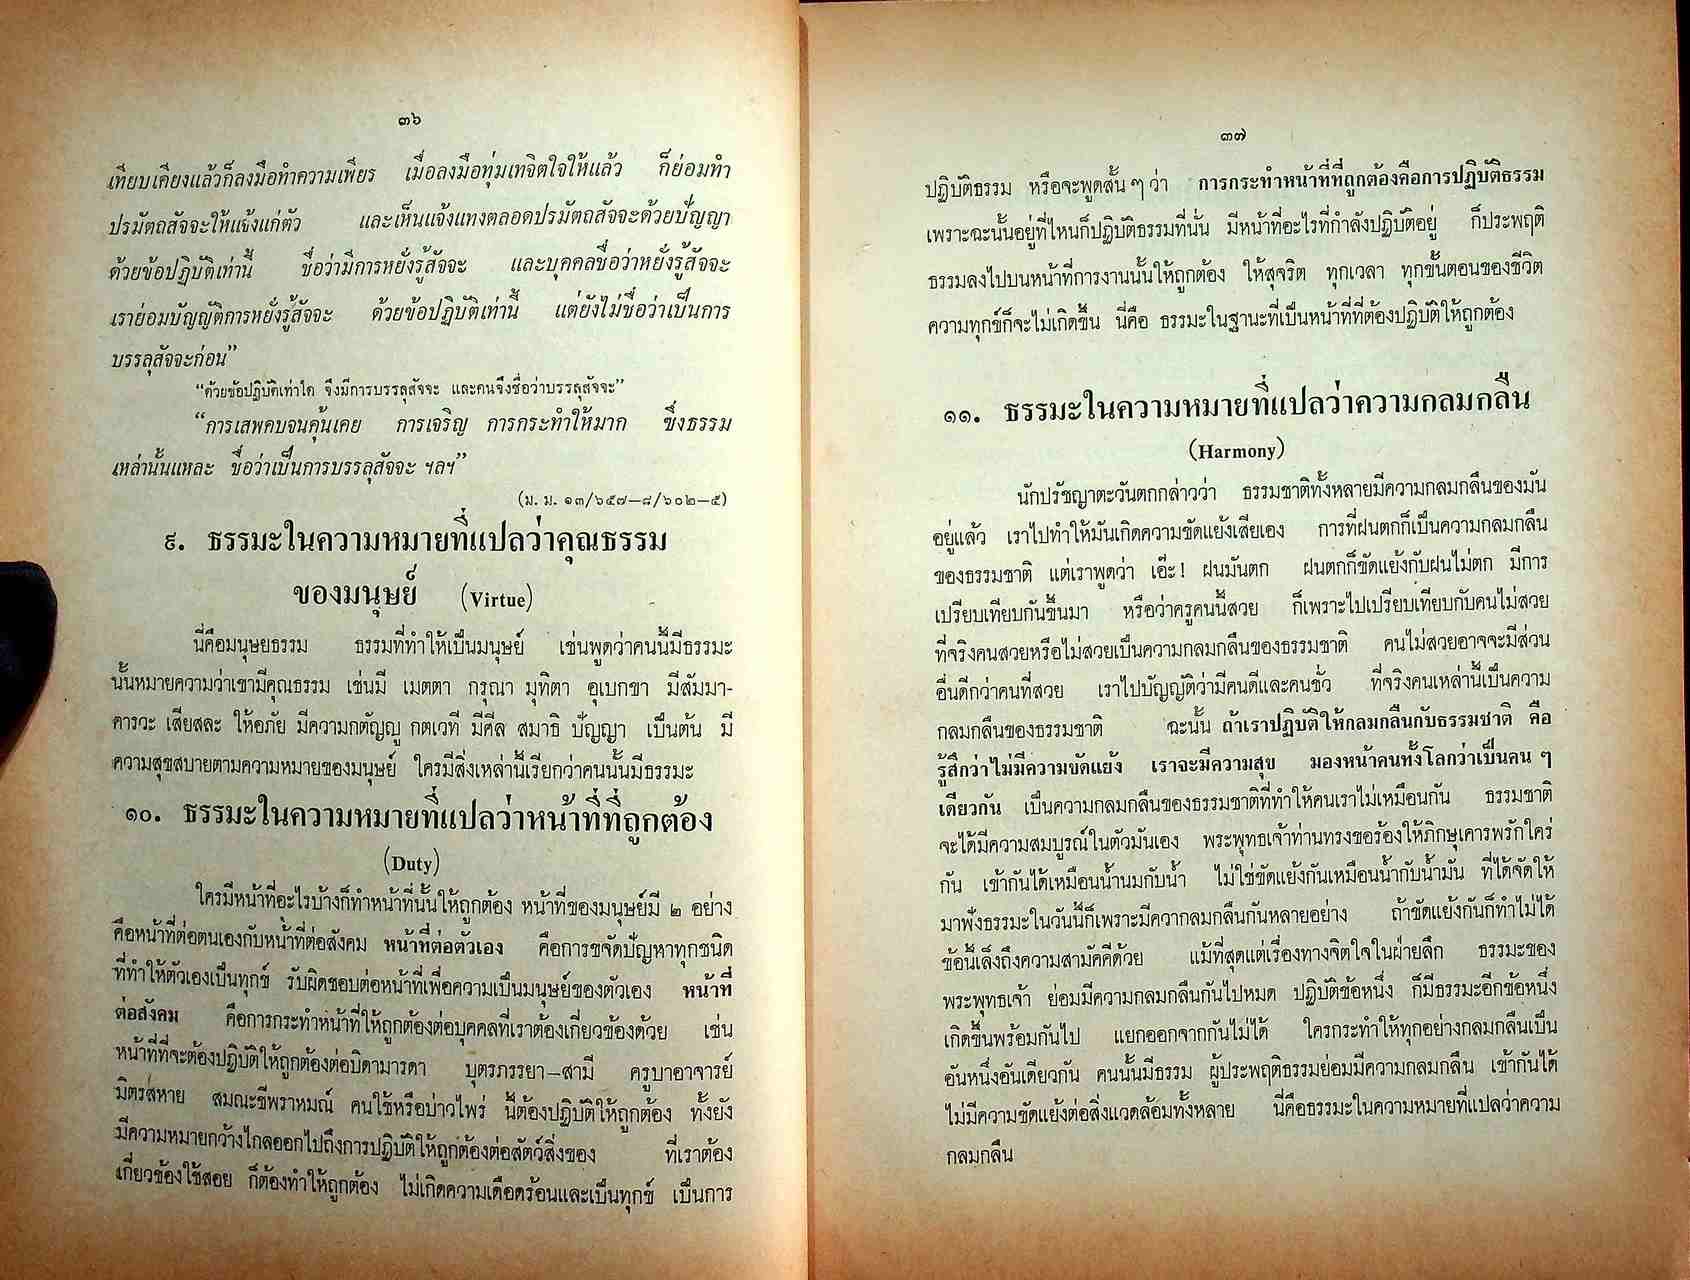 ๓๖
เทียบเคียงแล้วก็ลงมือทำความเพียร เมื่อลงมือทุ่มเทจิตใจให้แล้ว ก็ย่อมทำ
ปรมัตถสัจจะให้แจ้งแก่ตัว และเห็นแจ้งแทงตลอดปรมัตถสัจจะด้วยปัญญา
ด้วยข้อปฏิบัติเท่านี้ ชื่อว่ามีการหยั่งรู้สัจจะ และบุคคลชื่อว่าหยั่งรู้สัจจะ
เราย่อมบัญญัติการหยั่งรู้สัจจะ ด้วยข้อปฏิบัติเท่านี้ แต่ยังไม่ชื่อว่าเป็นการ
บรรลุสัจจะก่อน”
“ด้วยข้อปฏิบัติเท่าใด จึงมีการบรรลุสัจจะ และคนจึงชื่อว่าบรรลุสัจจะ”
“การเสพคบจนคุ้นเคย การเจริญ การกระทำให้มาก ซึ่งธรรม
เหล่านั้นแหละ ชื่อว่าเป็นการบรรลุสัจจะ ฯลฯ”
(ม. ม. ๑๓/๖๕๗–๘/๖๐๒–๕)
๙. ธรรมะในความหมายที่แปลว่าคุณธรรม
ของมนุษย์ (Virtue)
นี่คือมนุษยธรรม ธรรมที่ทำให้เป็นมนุษย์ เช่นพูดว่าคนนี้มีธรรมะ
นั้นหมายความว่าเขามีคุณธรรม เช่นมี เมตตา กรุณา มุทิตา อุเบกขา มีสัมมา-
คารวะ เสียสละ ให้อภัย มีความกตัญญู กตเวที มีศีล สมาธิ ปัญญา เป็นต้น มี
ความสุขสบายตามความหมายของมนุษย์ ใครมีสิ่งเหล่านี้เรียกว่าคนนั้นมีธรรมะ
๑๐. ธรรมะในความหมายที่แปลว่าหน้าที่ที่ถูกต้อง
(Duty)
ใครมีหน้าที่อะไรบ้างก็ทำหน้าที่นั้นให้ถูกต้อง หน้าที่ของมนุษย์มี ๒ อย่าง
คือหน้าที่ต่อตนเองกับหน้าที่ต่อสังคม หน้าที่ต่อตัวเอง คือการขจัดปัญหาทุกชนิด
ที่ทำให้ตัวเองเป็นทุกข์ รับผิดชอบต่อหน้าที่เพื่อความเป็นมนุษย์ของตัวเอง หน้าที่
ต่อสังคม คือการกระทำหน้าที่ให้ถูกต้องต่อบุคคลที่เราต้องเกี่ยวข้องด้วย เช่น
หน้าที่ที่จะต้องปฏิบัติให้ถูกต้องต่อบิดามารดา บุตรภรรยา–สามี ครูบาอาจารย์
มิตรสหาย สมณะชีพราหมณ์ คนใช้หรือบ่าวไพร่ นี้ต้องปฏิบัติให้ถูกต้อง ทั้งยัง
มีความหมายกว้างไกลออกไปถึงการปฏิบัติให้ถูกต้องต่อสัตว์สิ่งของ ที่เราต้อง
เกี่ยวข้องใช้สอย ก็ต้องทำให้ถูกต้อง ไม่เกิดความเดือดร้อนและเป็นทุกข์ เป็นการ
๓๗
ปฏิบัติธรรม หรือจะพูดสั้น ๆ ว่า การกระทำหน้าที่ที่ถูกต้องคือการปฏิบัติธรรม
เพราะฉะนั้นอยู่ที่ไหนก็ปฏิบัติธรรมที่นั่น มีหน้าที่อะไรที่กำลังปฏิบัติอยู่ ก็ประพฤติ
ธรรมลงไปบนหน้าที่การงานนั้นให้ถูกต้อง ให้สุจริต ทุกเวลา ทุกขั้นตอนของชีวิต
ความทุกข์ก็จะไม่เกิดขึ้น นี่คือ ธรรมะในฐานะที่เป็นหน้าที่ที่ต้องปฏิบัติให้ถูกต้อง
๑๑. ธรรมะในความหมายที่แปลว่าความกลมกลืน
(Harmony)
นักปรัชญาตะวันตกกล่าวว่า ธรรมชาติทั้งหลายมีความกลมกลืนของมัน
อยู่แล้ว เราไปทำให้มันเกิดความขัดแย้งเสียเอง การที่ฝนตกก็เป็นความกลมกลืน
ของธรรมชาติ แต่เราพูดว่า เอ๊ะ! ฝนมันตก ฝนตกก็ขัดแย้งกับฝนไม่ตก มีการ
เปรียบเทียบกันขึ้นมา หรือว่าครูคนนี้สวย ก็เพราะไปเปรียบเทียบกับคนไม่สวย
ที่จริงคนสวยหรือไม่สวยเป็นความกลมกลืนของธรรมชาติ คนไม่สวยอาจจะมีส่วน
อื่นดีกว่าคนที่สวย เราไปบัญญัติว่ามีคนดีและคนชั่ว ที่จริงคนเหล่านี้เป็นความ
กลมกลืนของธรรมชาติ ฉะนั้น ถ้าเราปฏิบัติให้กลมกลืนกับธรรมชาติ คือ
รู้สึกว่าไม่มีความขัดแย้ง เราจะมีความสุข มองหน้าคนทั้งโลกว่าเป็นคน ๆ
เดียวกัน เป็นความกลมกลืนของธรรมชาติที่ทำให้คนเราไม่เหมือนกัน ธรรมชาติ
จะได้มีความสมบูรณ์ในตัวมันเอง พระพุทธเจ้าท่านทรงขอร้องให้ภิกษุเคารพรักใคร่
กัน เข้ากันได้เหมือนน้ำนมกับน้ำ ไม่ใช่ขัดแย้งกันเหมือนน้ำกับน้ำมัน ที่ได้จัดให้
มาฟังธรรมะในวันนี้ก็เพราะมีควากลมกลืนกันหลายอย่าง ถ้าขัดแย้งกันก็ทำไม่ได้
ข้อนี้เล็งถึงความสามัคคีด้วย แม้ที่สุดแต่เรื่องทางจิตใจในฝ่ายลึก ธรรมะของ
พระพุทธเจ้า ย่อมมีความกลมกลืนกันไปหมด ปฏิบัติข้อหนึ่ง ก็มีธรรมะอีกข้อหนึ่ง
เกิดขึ้นพร้อมกันไป แยกออกจากกันไม่ได้ ใครกระทำให้ทุกอย่างกลมกลืนเป็น
อันหนึ่งอันเดียวกัน คนนั้นมีธรรม ผู้ประพฤติธรรมย่อมมีความกลมกลืน เข้ากันได้
ไม่มีความขัดแย้งต่อสิ่งแวดล้อมทั้งหลาย นี่คือธรรมะในความหมายที่แปลว่าความ
กลมกลืน